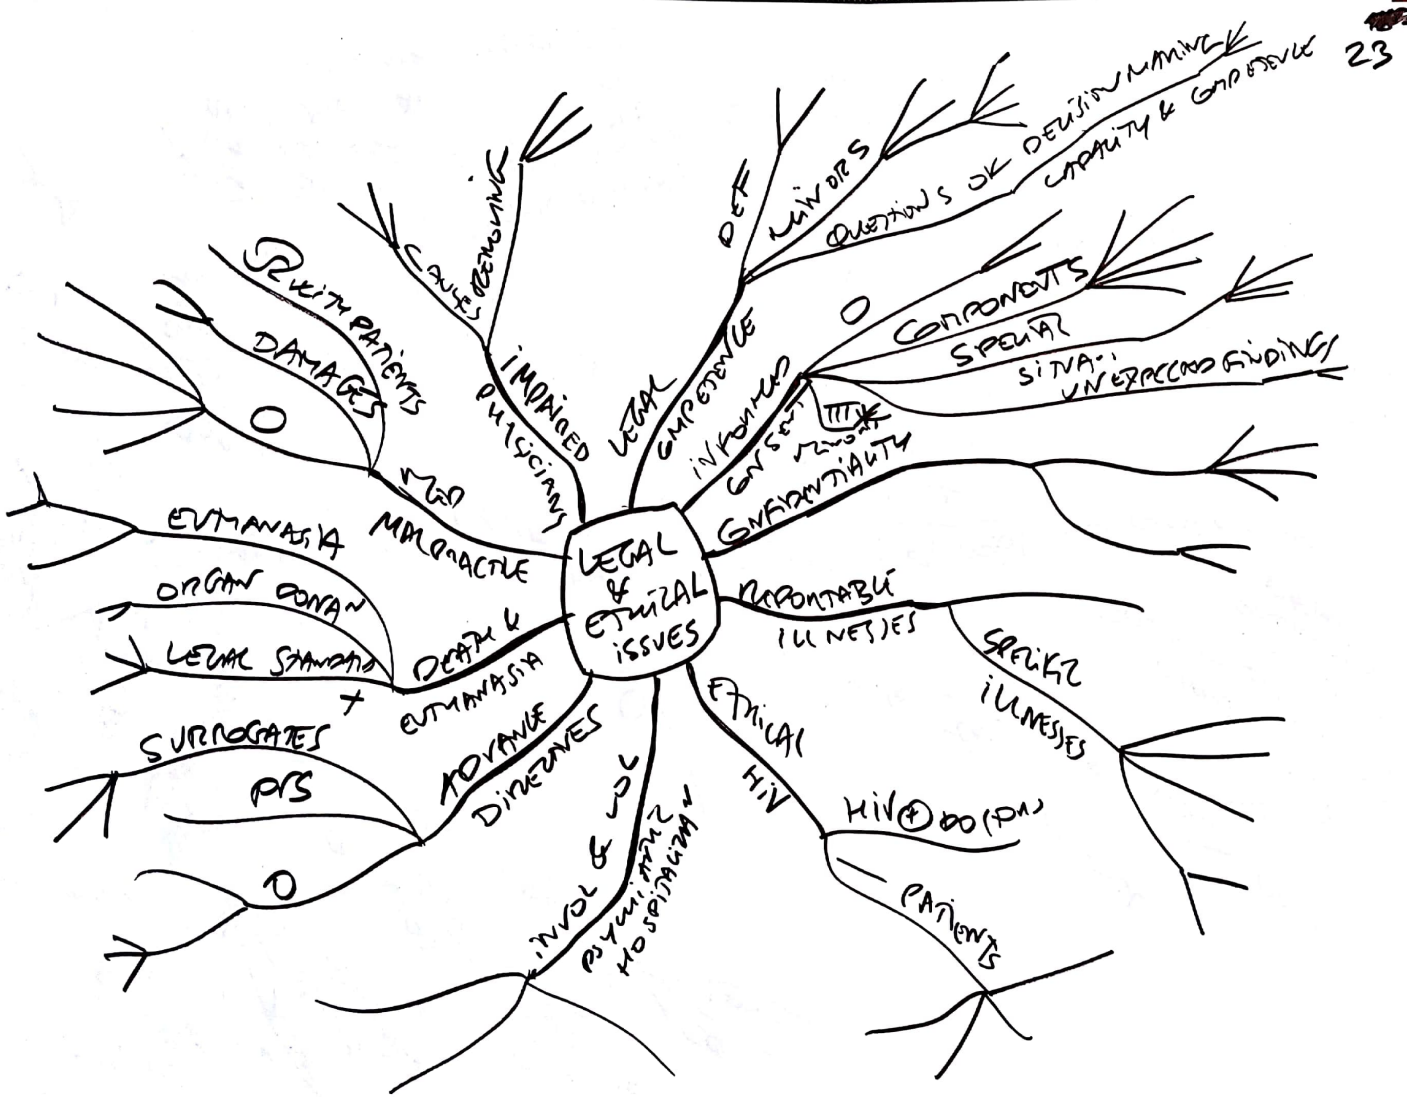 23
LEGAL
&
ETHICAL
ISSUES
LEGAL
COMPETENCE
DEF
MINORS
QUESTIONS OK DECISION MAKING
CAPACITY & COMPETENCE
INFORMED
CONSENT
O
COMPONENTS
SPECIAL
SITUA..
UNEXPECTED FINDINGS
MINORS
CONFIDENTIALITY
REPORTABLE
ILLNESSES
SPECIFIC
ILLNESSES
ETHICAL
HIV
HIV + DOCTORS
PATIENTS
INVOL & VOL
PSYCHIATRIC
HOSPITALIZAN
ADVANCE
DIRECTIVES
SURROGATES
O
DEATH &
EUTHANASIA
EUTHANASIA
ORGAN DONAN
LEGAL STANDARD
MED
MALPRACTICE
PATIENTS
DAMAGES
O
IMPAIRED
PHYSICIANS
CAUSES
REMOVING